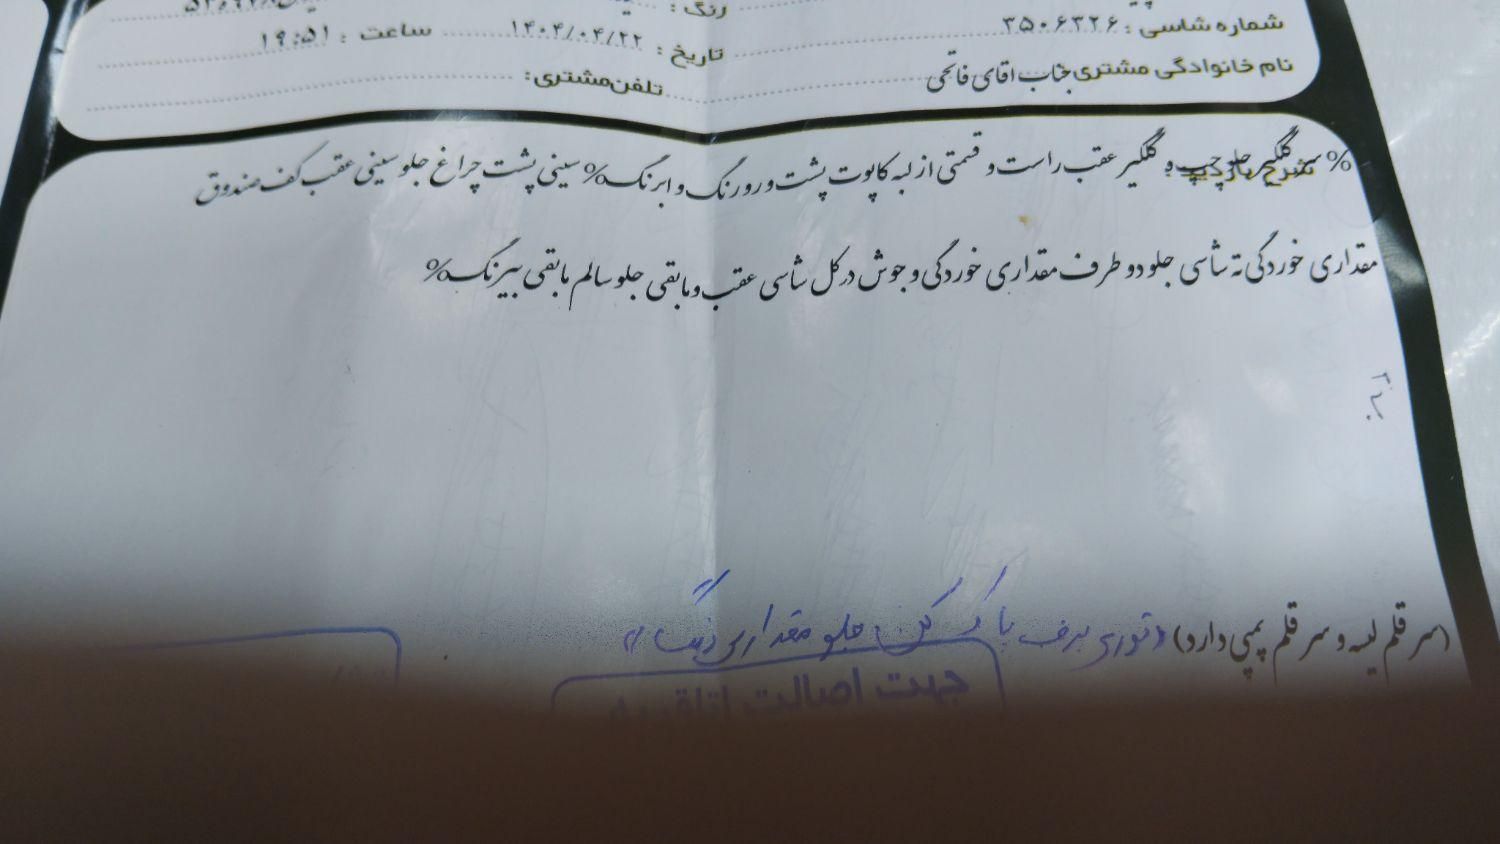 رنگ :
شماره شاسی : ۳۵۰۶۳۲۶ تاریخ : ۱۴۰۴/۰۴/۲۲ ساعت : ۱۹:۵۱
نام خانوادگی مشتری : جناب اقای فاتحی تلفن مشتری :
شرح بازدید :
% سر گلگیر جلو چپ و گلگیر عقب راست و قسمتی از لبه کاپوت پشت و رو رنگ و ابرنگ% سینی پشت چراغ جلو سینی عقب کف صندوق
مقداری خوردگی ته شاسی جلو دو طرف مقداری خوردگی و جوش در کل شاسی عقب و مابقی جلو سالم مابقی بیرنگ%
(سر قلم لیسه و سر قلم پمپی دارد) (توری برف پاک کن جلو مقداری رنگ
جهت اصالت اتاق به